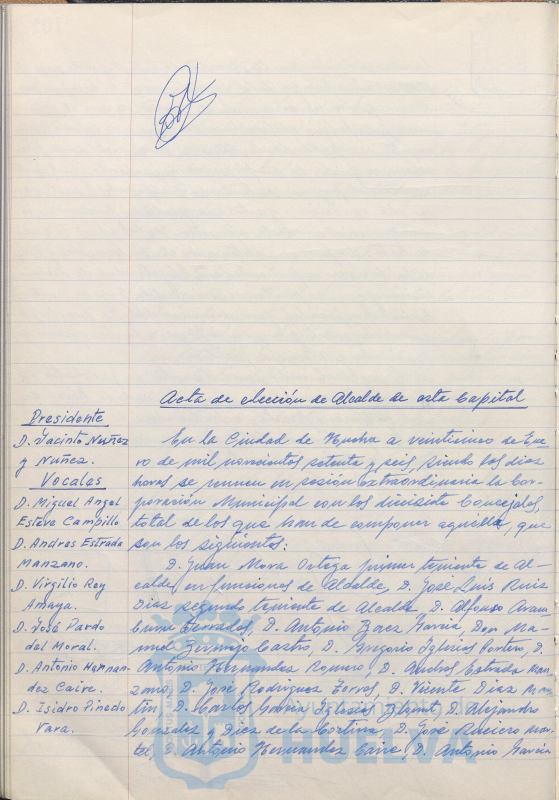 Acta de elección de Alcalde de esta Capital
Presidente
D. Jacinto Nuñez
y Nuñez.
Vocales
D. Miguel Angel
Esteva Campillo
D. Andres Estrada
Manzano.
D. Virgilio Rey
Amaya.
D. José Pardo
del Moral.
D. Antonio Hernan-
dez Caire.
D. Isidro Pinedo
Vara.
En la Ciudad de Huelva a veinticinco de Ene-
ro de mil novecientos setenta y seis, siendo las diez
horas se reunen en sesión extraordinaria la Cor-
poración Municipal con los diecisiete Concejales,
total de los que han de componer aquella, que
son los siguientes:
D. Juan Mora Ortega primer teniente de Al-
calde en funciones de Alcalde, D. José Luis Ruiz
Diaz segundo teniente de Alcalde, D. Alfonso
Terrades, D. Antonio Garcia, Don Ma-
nuel Bermejo Castro, D. Gregorio Iglesias D.
Antonio Hernandez Romero, D. Andres Estrada Man-
zano, D. José Rodriguez Torres, D. Vicente Diaz Mar-
tin D. Carlos Garcia Iglesias D. Alejandro
Gonzalez y Diez de la Cortina, D. José
D. Antonio Hernandez Caire, D. Antonio Garcia
HUELVA